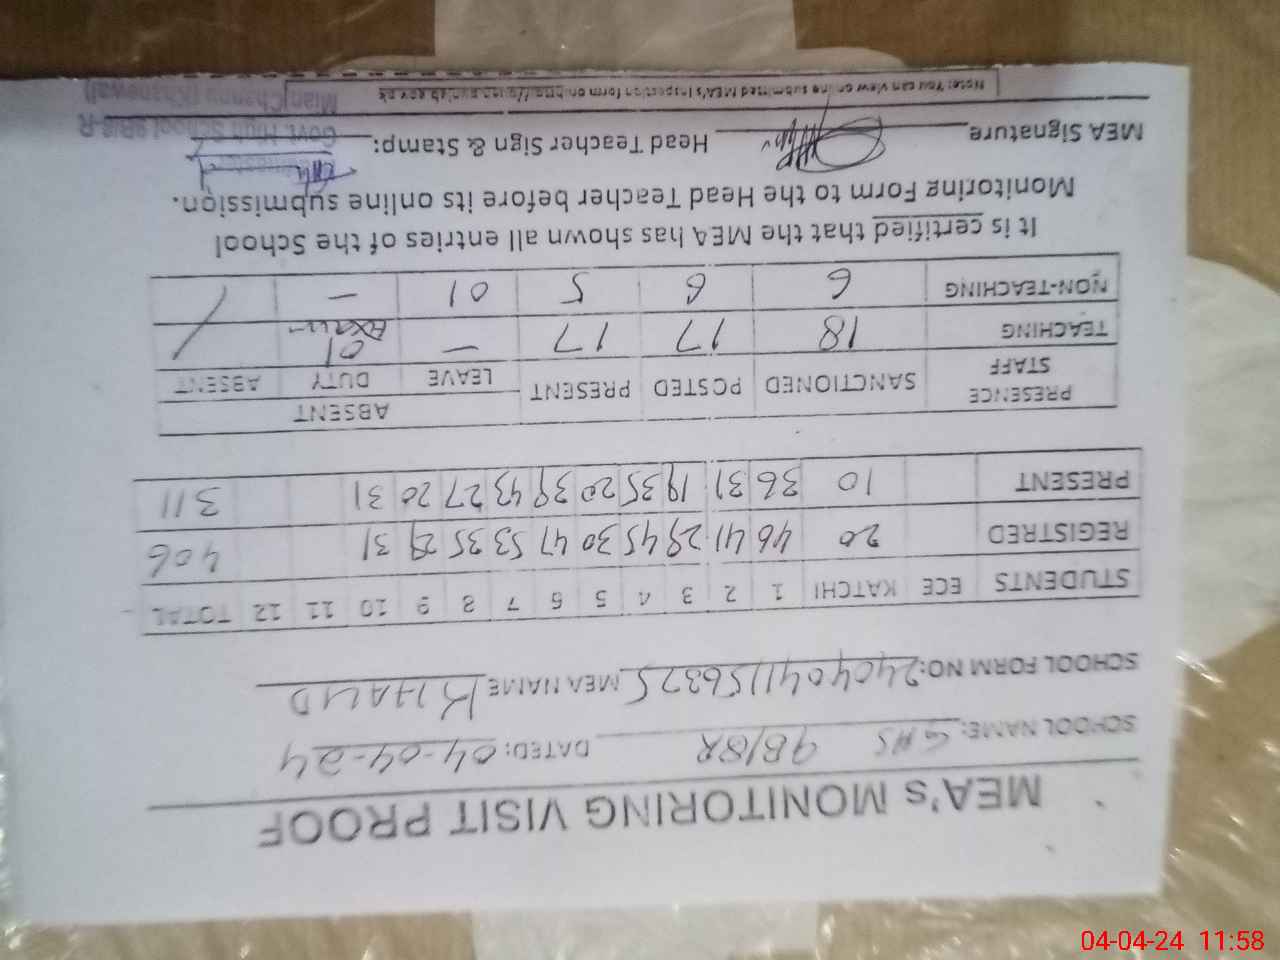 MEA's MONITORING VISIT PROOF
SCHOOL NAME: GHS 9B/8R DATED: 04-04-24
SCHOOL FORM NO: 2404041156375 MEA NAME KHALID
STUDENTS ECE KATCHI 1 2 3 4 5 6 7 8 9 10 11 12 TOTAL
REGISTRED 20 46 41 29 45 30 47 53 35 29 31 406
PRESENT 10 36 31 19 35 20 39 43 27 20 31 311
PRESENCE STAFF SANCTIONED POSTED PRESENT ABSENT
LEAVE DUTY ABSENT
TEACHING 18 17 17 – 01 Exam /
NON-TEACHING 6 6 5 01 – /
It is certified that the MEA has shown all entries of the School
Monitoring Form to the Head Teacher before its online submission.
MEA Signature Head Teacher Sign & Stamp:
Headmaster
Govt. High School 9B/8-R
Mian Channu (Khanewal)
Note: You can view online submitted MEA's Inspection form on
04-04-24 11:58